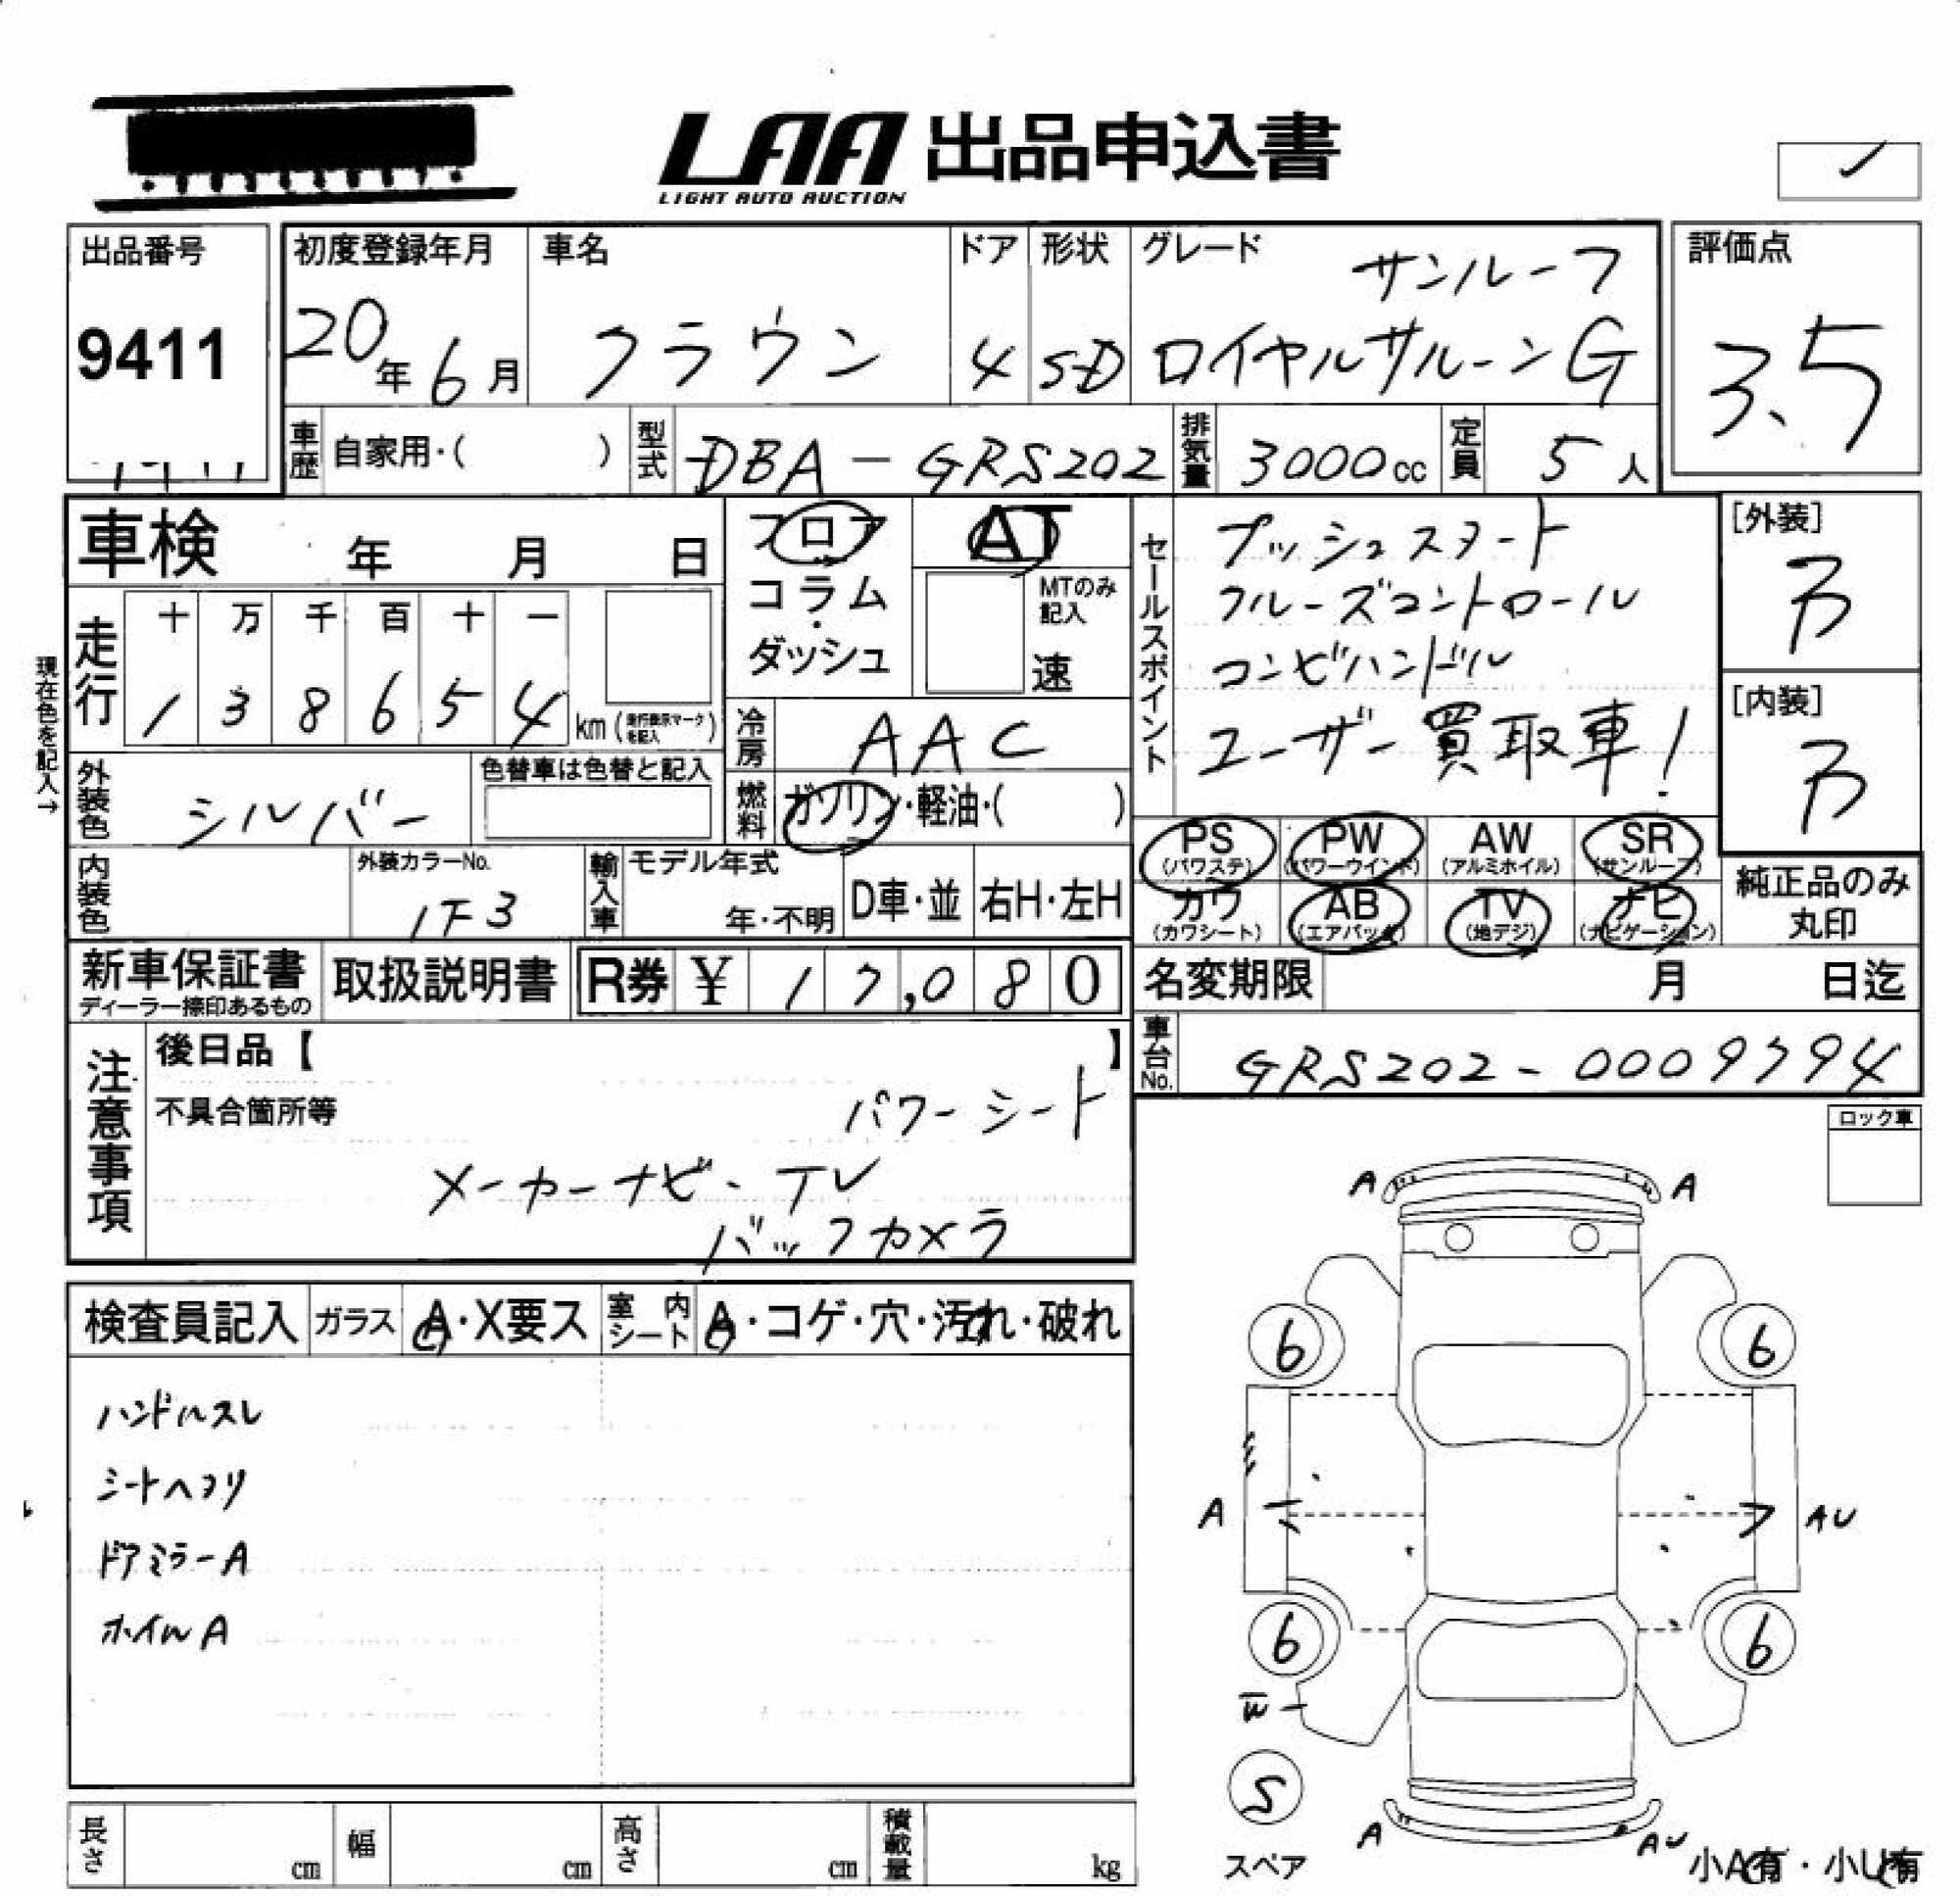 LAA 出品申込書
LIGHT AUTO AUCTION
出品番号
9411
初度登録年月
20年6月
車名
クラウン
ドア
4
形状
SD
グレード
サンルーフ
ロイヤルサルーンG
評価点
3.5
車歴 自家用・( )
型式 DBA-GRS202
排気量 3000cc
定員 5人
車検 年 月 日
フロア
コラム
・
ダッシュ
AT
MTのみ
記入
速
セールスポイント
プッシュスタート
クルーズコントロール
コンビハンドル
ユーザー買取車!
[外装]
B
[内装]
B
現在色を記入→
走行
十 万 千 百 十 一
1 3 8 6 5 4 km (走行表示マークを記入)
冷房 AAC
外装色 シルバー
色替車は色替と記入
燃料 ガソリン・軽油・( )
PS (パワステ)
PW (パワーウインド)
AW (アルミホイル)
SR (サンルーフ)
カワ (カワシート)
AB (エアバック)
TV (地デジ)
ナビ (ナビゲーション)
純正品のみ
丸印
内装色
外装カラーNo.
1F3
輸入車
モデル年式
年・不明
D車・並
右H・左H
新車保証書
ディーラー捺印あるもの
取扱説明書
R券 ¥ 17,080
名変期限 月 日迄
車台No. GRS202-0009794
注意事項
後日品【 】
不具合箇所等
パワーシート
メーカーナビ・TV
バックカメラ
ロック車
検査員記入
ガラス A・X要ス
室内シート A・コゲ・穴・汚れ・破れ
ハンドルスレ
シートヘタリ
ドアミラーA
ホイルA
A A
6 6
A AU
6 6
W
S
スペア
A AU
小A有・小U有
長さ cm
幅 cm
高さ cm
積載量 kg